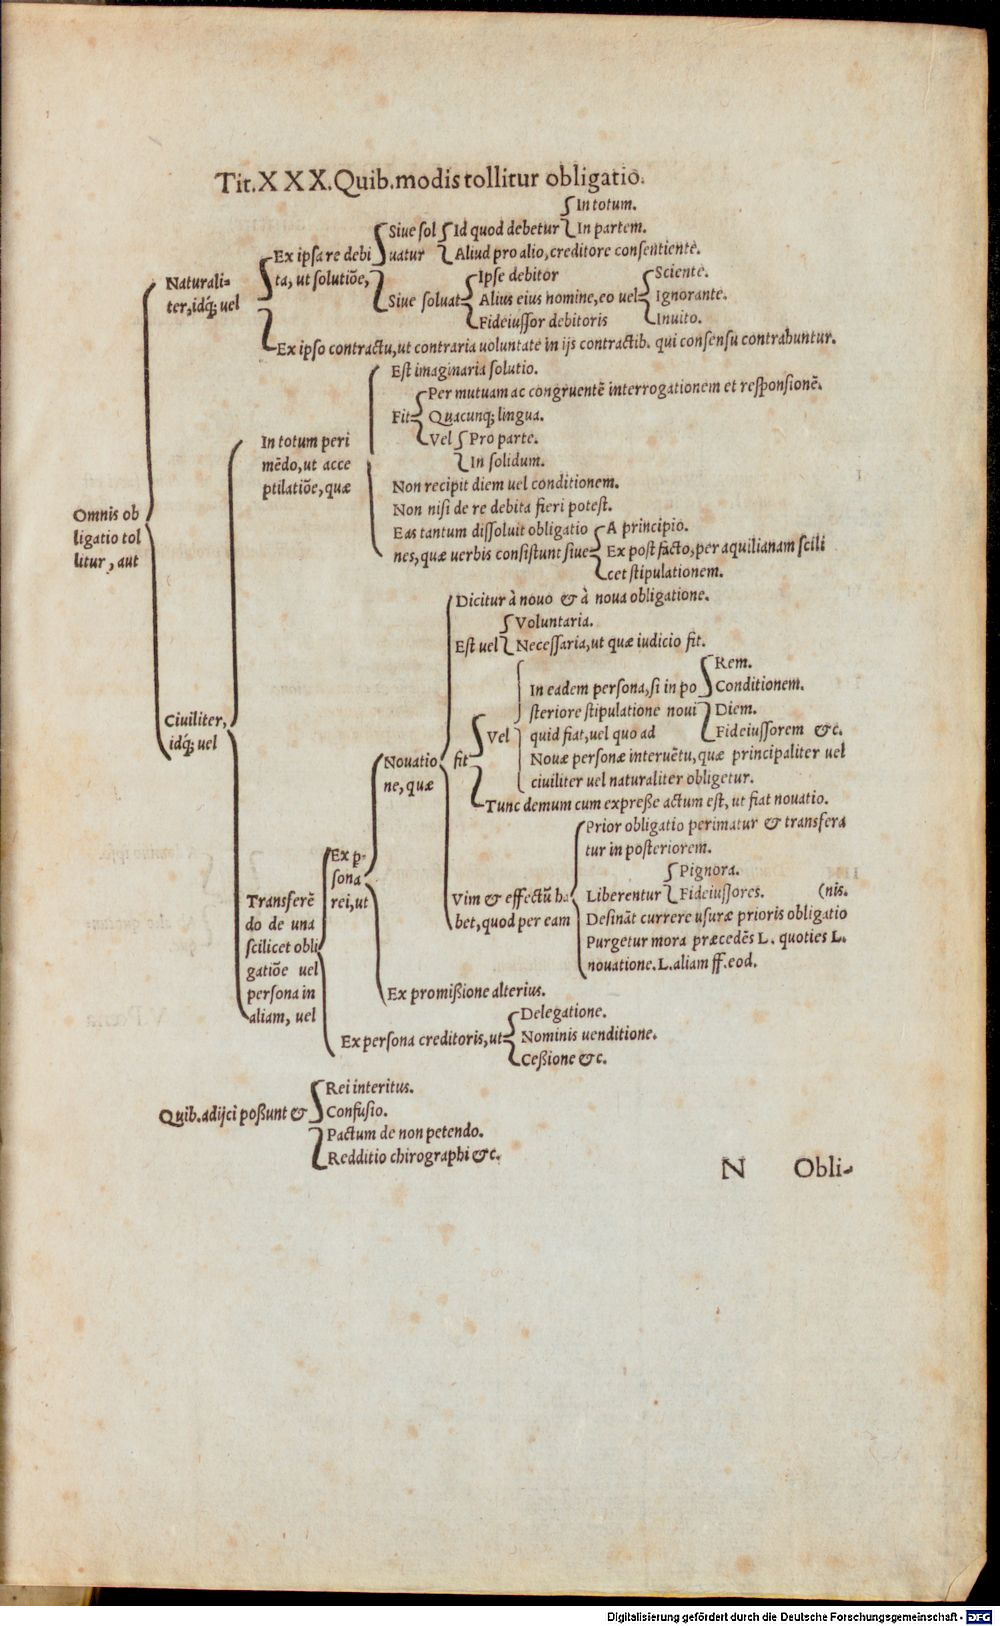 Tit.XXX.Quib.modis tollitur obligatio.
Omnis ob
ligatio tol
litur, aut
Naturali-
ter, idq́; uel
Ex ipsa re debi
ta, ut solutiõe,
Siue sol
uatur
Id quod debetur
In totum.
In partem.
Aliud pro alio, creditore consentiente.
Siue soluat
Ipse debitor
Alius eius nomine, eo uel
Sciente.
Ignorante.
Inuito.
Fideiussor debitoris
Ex ipso contractu, ut contraria uoluntate in ijs contractib. qui consensu contrahuntur.
Ciuiliter,
idq́; uel
In totum peri
mẽdo, ut acce
ptilatiõe, quæ
Est imaginaria solutio.
Fit
Per mutuam ac congruentẽ interrogationem et responsionẽ.
Quacunq; lingua.
Vel
Pro parte.
In solidum.
Non recipit diem uel conditionem.
Non nisi de re debita fieri potest.
Eas tantum dissoluit obligatio
nes, quæ uerbis consistunt siue
A principio.
Ex post facto, per aquilianam scili
cet stipulationem.
Transferẽ
do de una
scilicet obli
gatiõe uel
persona in
aliam, uel
Ex p̱-
sona
rei, ut
Nouatio
ne, quæ
Dicitur à nouo & à noua obligatione.
Est uel
Voluntaria.
Necessaria, ut quæ iudicio fit.
fit
Vel
In eadem persona, si in po
steriore stipulatione noui
quid fiat, uel quo ad
Rem.
Conditionem.
Diem.
Fideiussorem &c.
Nouæ personæ interuẽtu, quæ principaliter uel
ciuiliter uel naturaliter obligetur.
Tunc demum cum expreße actum est, ut fiat nouatio.
Vim & effectũ ha
bet, quod per eam
Prior obligatio perimatur & transfera
tur in posteriorem.
Liberentur
Pignora.
Fideiussores.
(nis.
Desinãt currere usuræ prioris obligatio
Purgetur mora præcedẽs L. quoties L.
nouatione. L. aliam ff. eod.
Ex promißione alterius.
Ex persona creditoris, ut
Delegatione.
Nominis uenditione.
Ceßione &c.
Quib. adijci poßunt &
Rei interitus.
Confusio.
Pactum de non petendo.
Redditio chirographi &c.
N Obli-
Digitalisierung gefördert durch die Deutsche Forschungsgemeinschaft - DFG